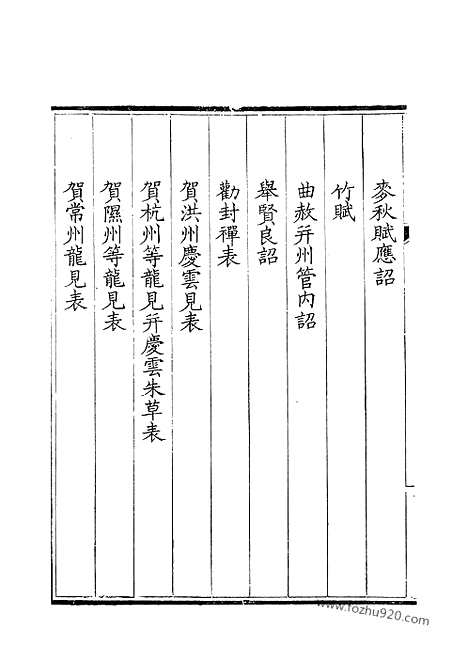 麥秋賦應詔
竹賦
曲赦并州管內詔
舉賢良詔
勸封禪表
賀洪州慶雲見表
賀杭州等龍見并慶雲朱草表
賀隰州等龍見表
賀常州龍見表
www.fozhu920.com